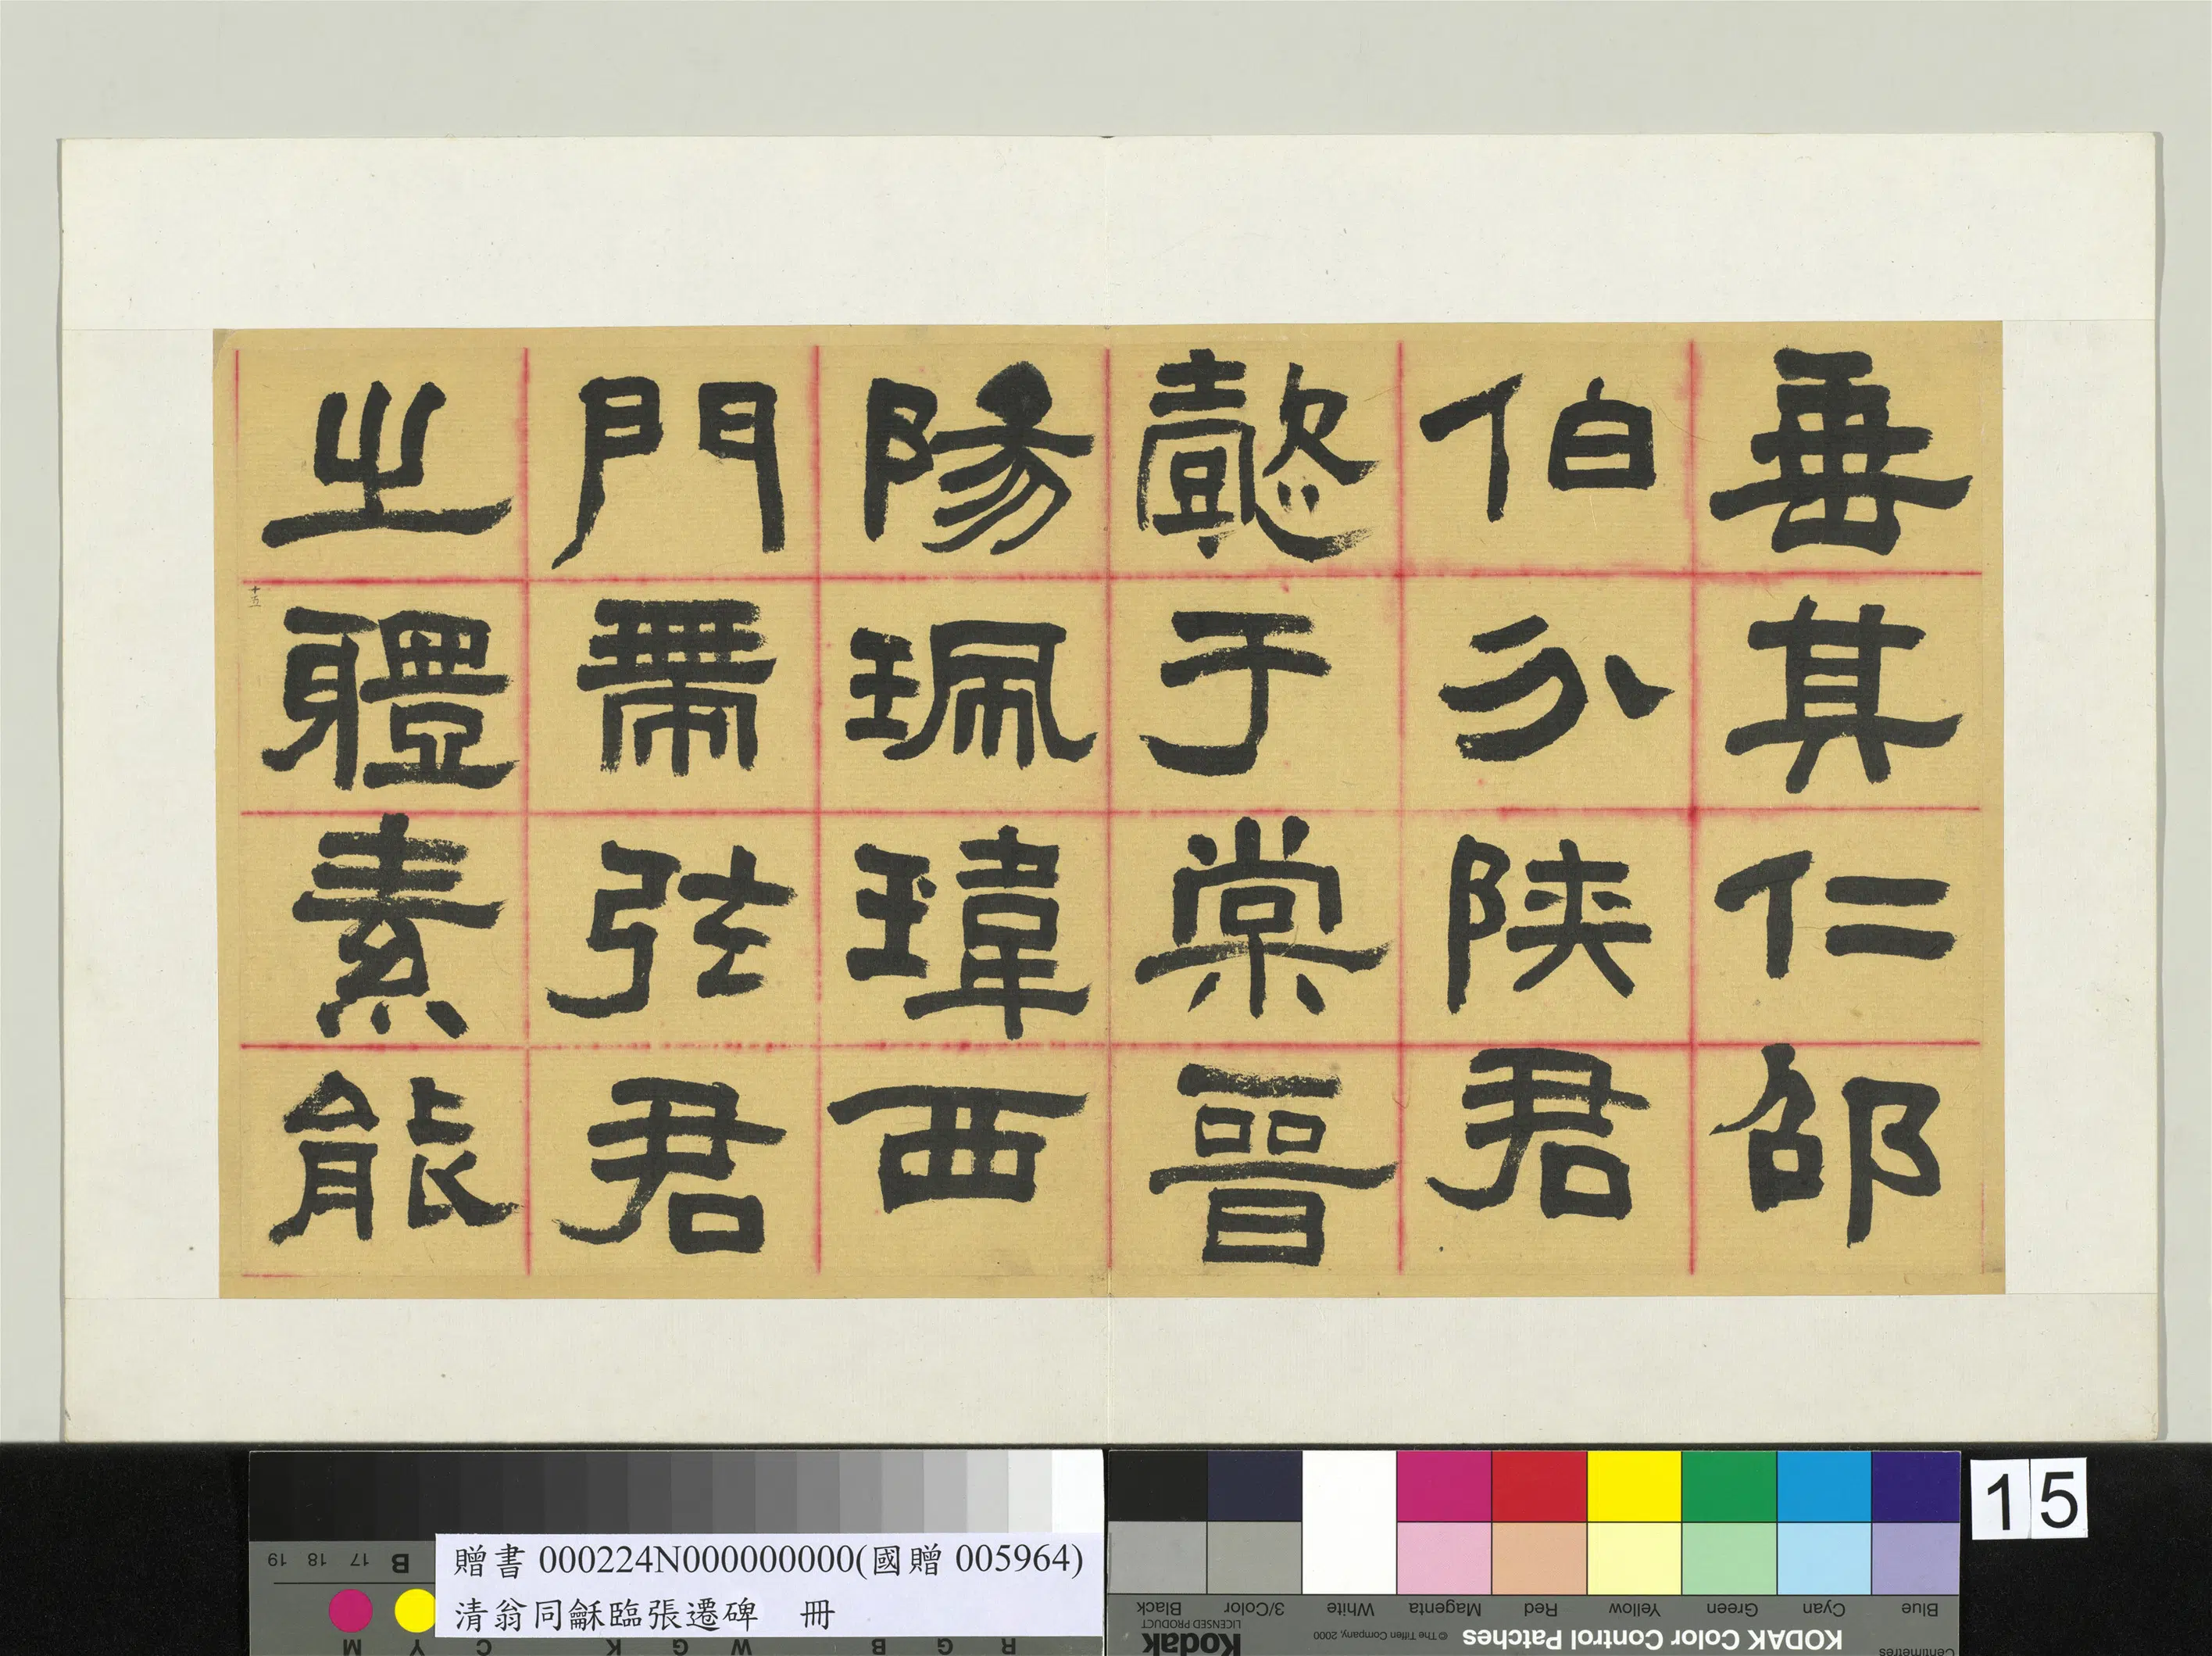 垂其仁邵
伯分陝君
懿于棠晉
陽珮瑋西
門帶弦君
之體素能
十五
贈書 000224N000000000(國贈 005964)
清翁同龢臨張遷碑 冊
15
KODAK Color Control Patches
© The Tiffen Company, 2000
Kodak
LICENSED PRODUCT
Blue Cyan Green Yellow Red Magenta White 3/Color Black
Centimetres
B 17 18 19
R G B W G K C Y M